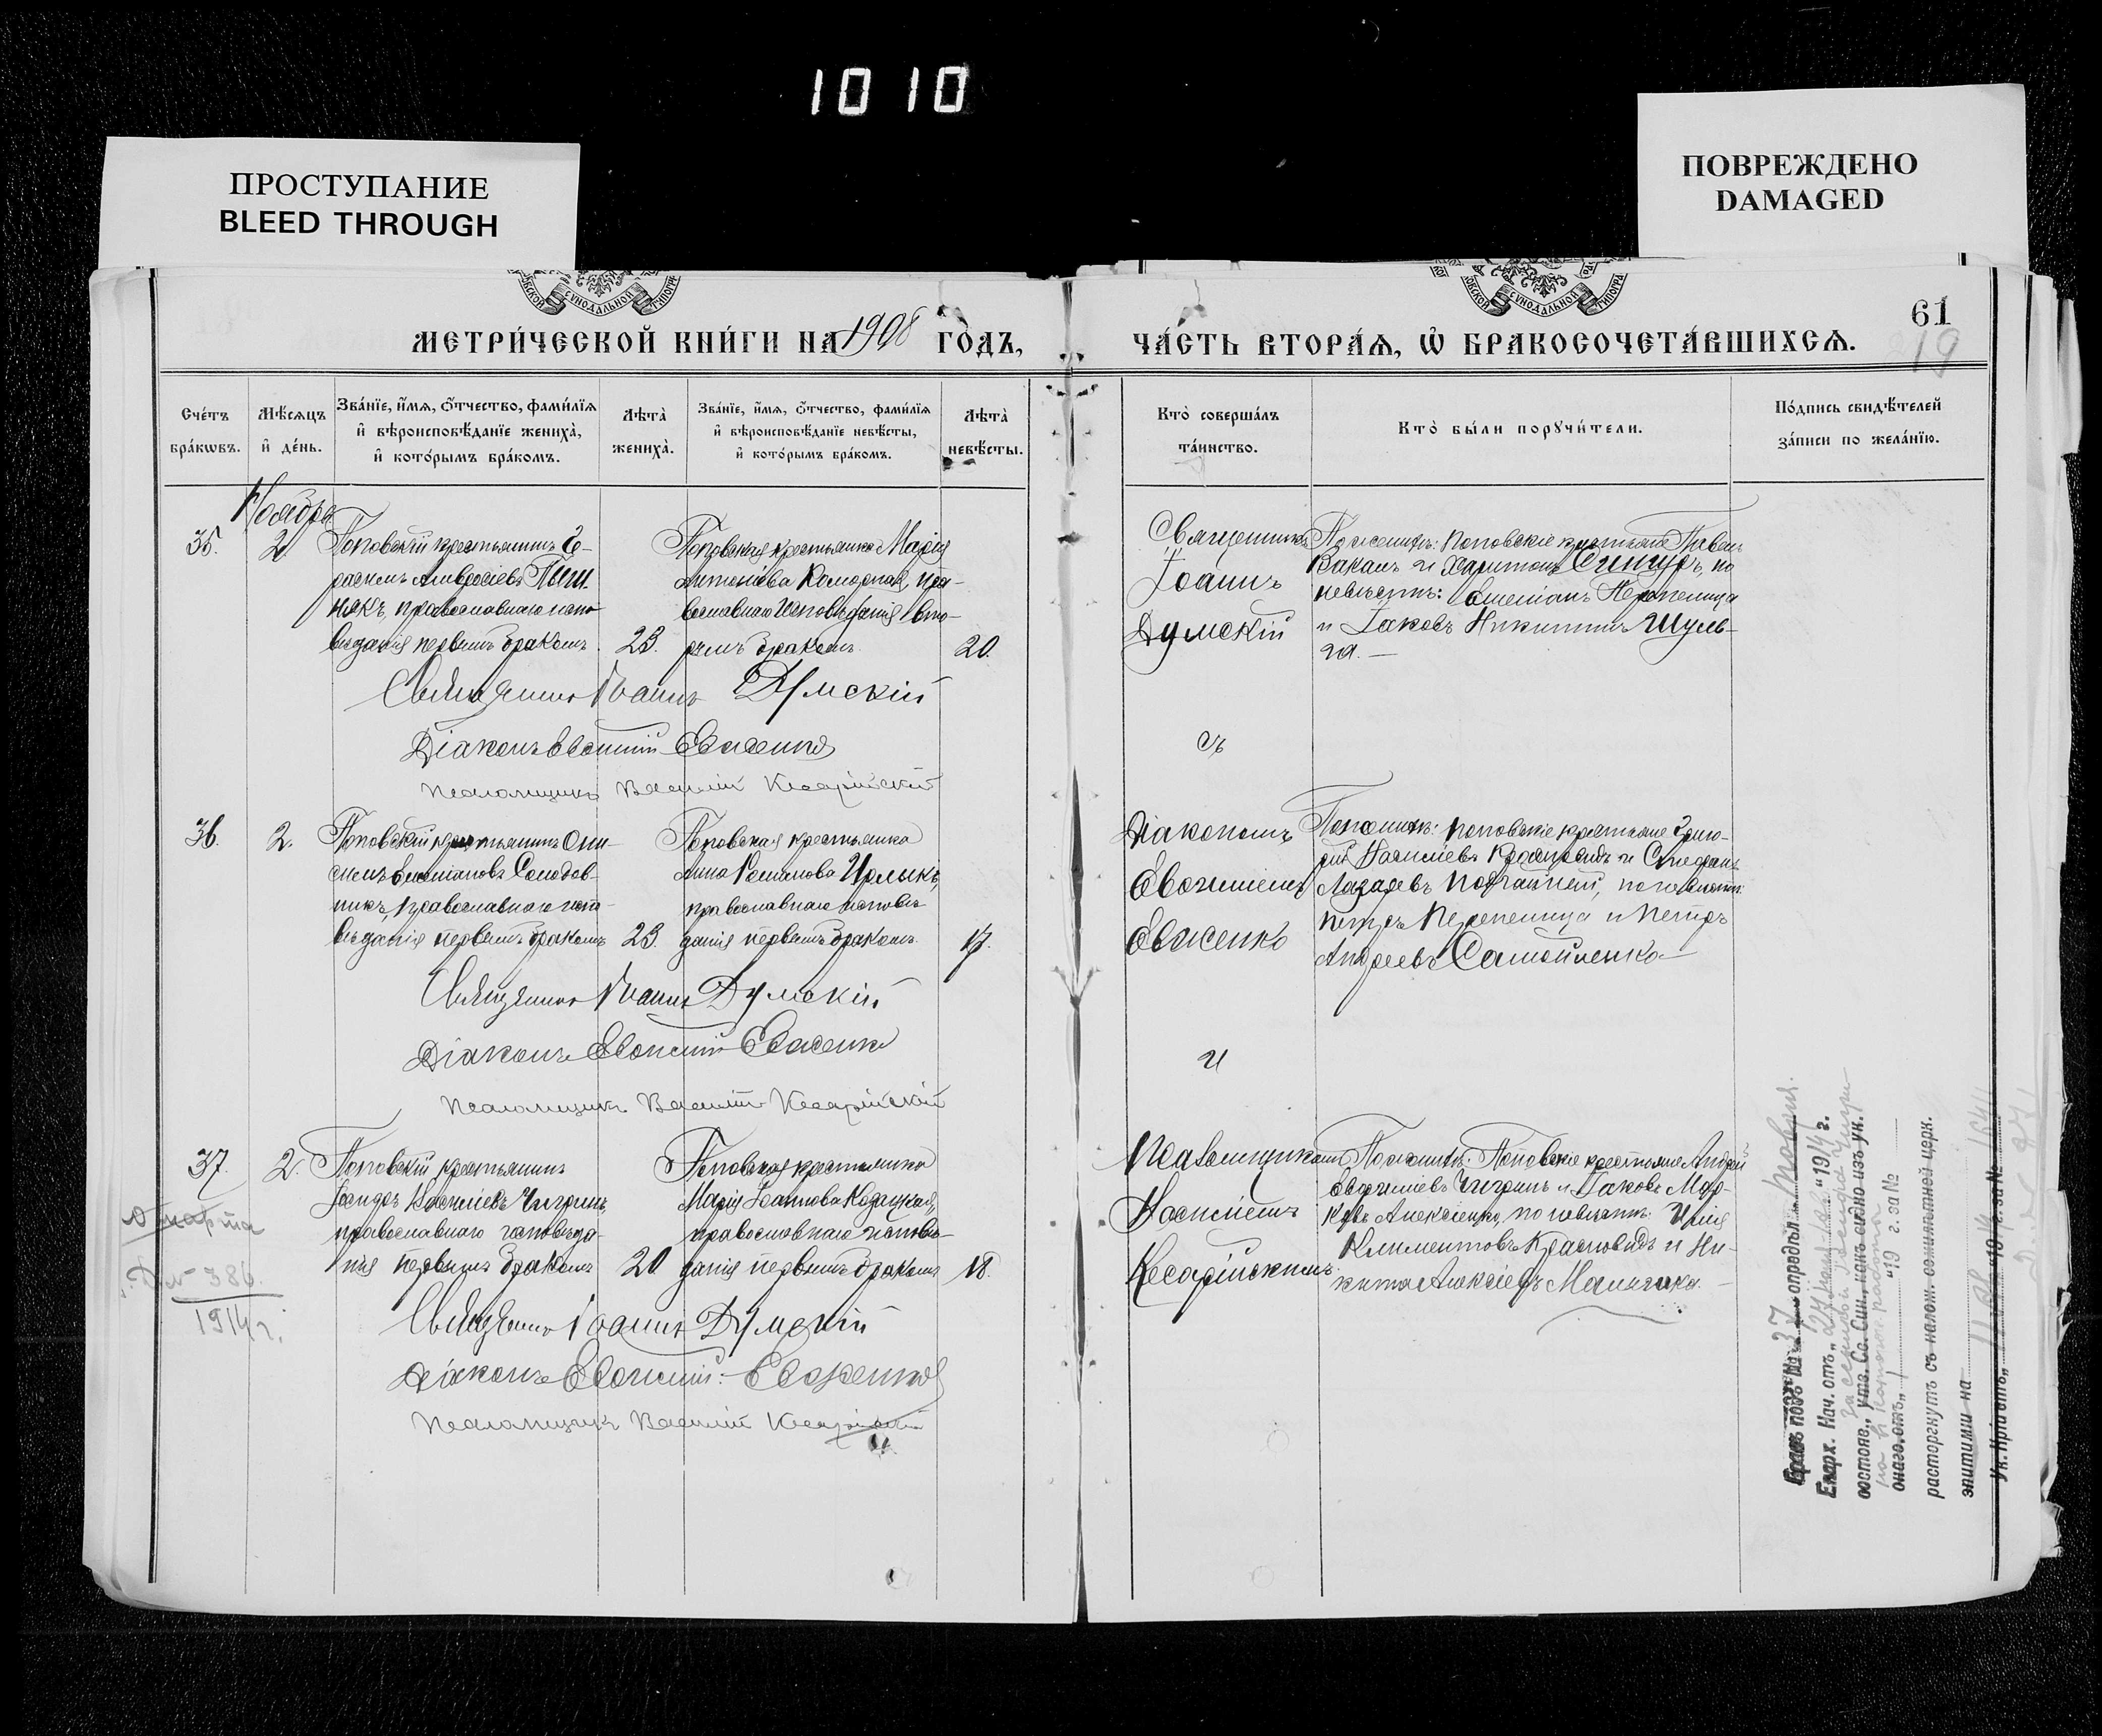 1010
ПРОСТУПАНИЕ
BLEED THROUGH
ПОВРЕЖДЕНО
DAMAGED
61
19
МЕТРИ́ЧЕСКОЙ КНИ́ГИ НА 1908 ГО́ДЪ,
ЧА́СТЬ ВТОРА́Ѧ, Ѽ БРАКОСОЧЕТА́ВШИХСѦ.
Сче́тъ бра́кѡвъ.
Мѣ́сѧцъ и҆ де́нь.
Зва́нїе, и҆́мѧ, ѻ҆́тчество, фами́лїѧ
и҆ вѣроисповѣ́данїе жениха̀,
и҆ кото́рымъ бра́комъ.
Лѣта̀ жениха̀.
Зва́нїе, и҆́мѧ, ѻ҆́тчество, фами́лїѧ
и҆ вѣроисповѣ́данїе невѣ́сты,
и҆ кото́рымъ бра́комъ.
Лѣта̀ невѣ́сты.
Кто̀ соверша́лъ
та́инство.
Кто̀ бы́ли порꙋчи́тели.
По́дпись свидѣ́телей
за́писи по жела́нїю.
Ноябрь
35.
2
Поповскій крестьянинъ Ге-
расимъ Амвросіевъ
православнаго испо-
вѣданія первымъ бракомъ
23.
Поповская крестьянка Марія
Антоніева Коморная, пра-
вославнаго исповѣданія вто-
рымъ бракомъ.
20.
Священникъ
Іоаннъ
Думскій
По женихѣ: поповскіе крестьяне Павелъ
Вакалъ и Харитонъ по
невѣстѣ: Перепелица
и Іаковъ Никитинъ Шуль-
га. —
Священникъ Іоаннъ Думскій
Діаконъ Евѳимій Евсеенко
Псаломщикъ Василій Кесарійскій
съ
36.
2.
Поповскій крестьянинъ Они-
симъ Солодов-
никъ, православнаго испо-
вѣданія первымъ бракомъ
23.
Поповская крестьянка
Анна Романова
православнаго исповѣ-
данія первымъ бракомъ.
17.
Діакономъ
Евѳиміемъ
Евсеенко
По женихѣ: поповскіе крестьяне Григо-
рій Васильевъ Красновидъ и Стефанъ
Лазаревъ по невѣстѣ:
Петръ Перепелица и Петръ
Андреевъ Самойленко —
Священникъ Іоаннъ Думскій
Діаконъ Евѳимій Евсеенко
Псаломщикъ Василій Кесарійскій
и
37.
2.
Поповскій крестьянинъ
Васильевъ Чигринъ,
православнаго исповѣда-
нія первымъ бракомъ
20
Поповская крестьянка
Марія Іоаннова Козацкая,
православнаго исповѣ-
данія первымъ бракомъ
18.
Псаломщикомъ
Василіемъ
Кесарійскимъ.
По женихѣ: Поповскіе крестьяне Андрей
Чигринъ и Іаковъ Мар-
ковъ Алексіенко, по невѣстѣ: Илія
Климентовъ Красновидъ и Ни-
кита Алексіевъ —
марта
Д. № 386.
1914 г.
Священникъ Іоаннъ Думскій
Діаконъ Евѳимій Евсеенко
Псаломщикъ Василій Кесарійскій
Бракъ подъ № 37 опредѣл.
Епарх. Нач. отъ „ “ 1914 г.
состояв., утв. Св. Син., какъ видно изъ ук.
онаго, отъ „ “ 19 г. за №
расторгнутъ съ налож. семилѣтней церк.
эпитиміи на